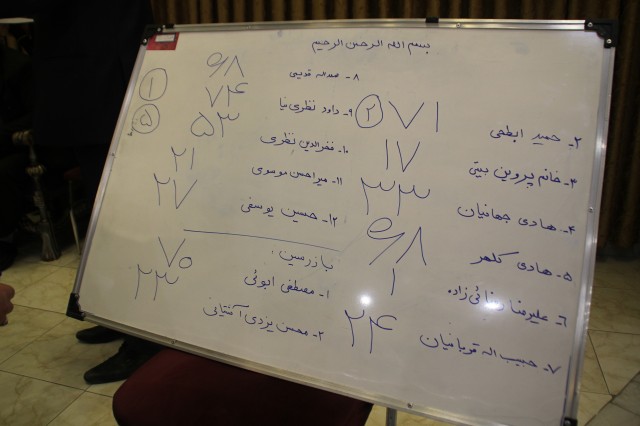 بسم الله الرحمن الرحیم
۲- حمید ابطحی ۷۱ ۲
۳- خانم پروین بیتی ۱۷
۴- هادی جهانیان ۳۳
۵- هادی کلهر ۶۸
۶- علیرضا زاده ۱
۷- حبیب اله قربانیان ۲۴
۸- ۶۸
۹- داود نظری نیا ۷۴ ۱
۱۰- فخرالدین نظری ۵۳ ۵
۱۱- میراحسن موسوی ۲۱
۱۲- حسین یوسفی ۲۷
بازرسین:
۱- مصطفی ابوئی ۷۰
۲- محسن یزدی ۲۳